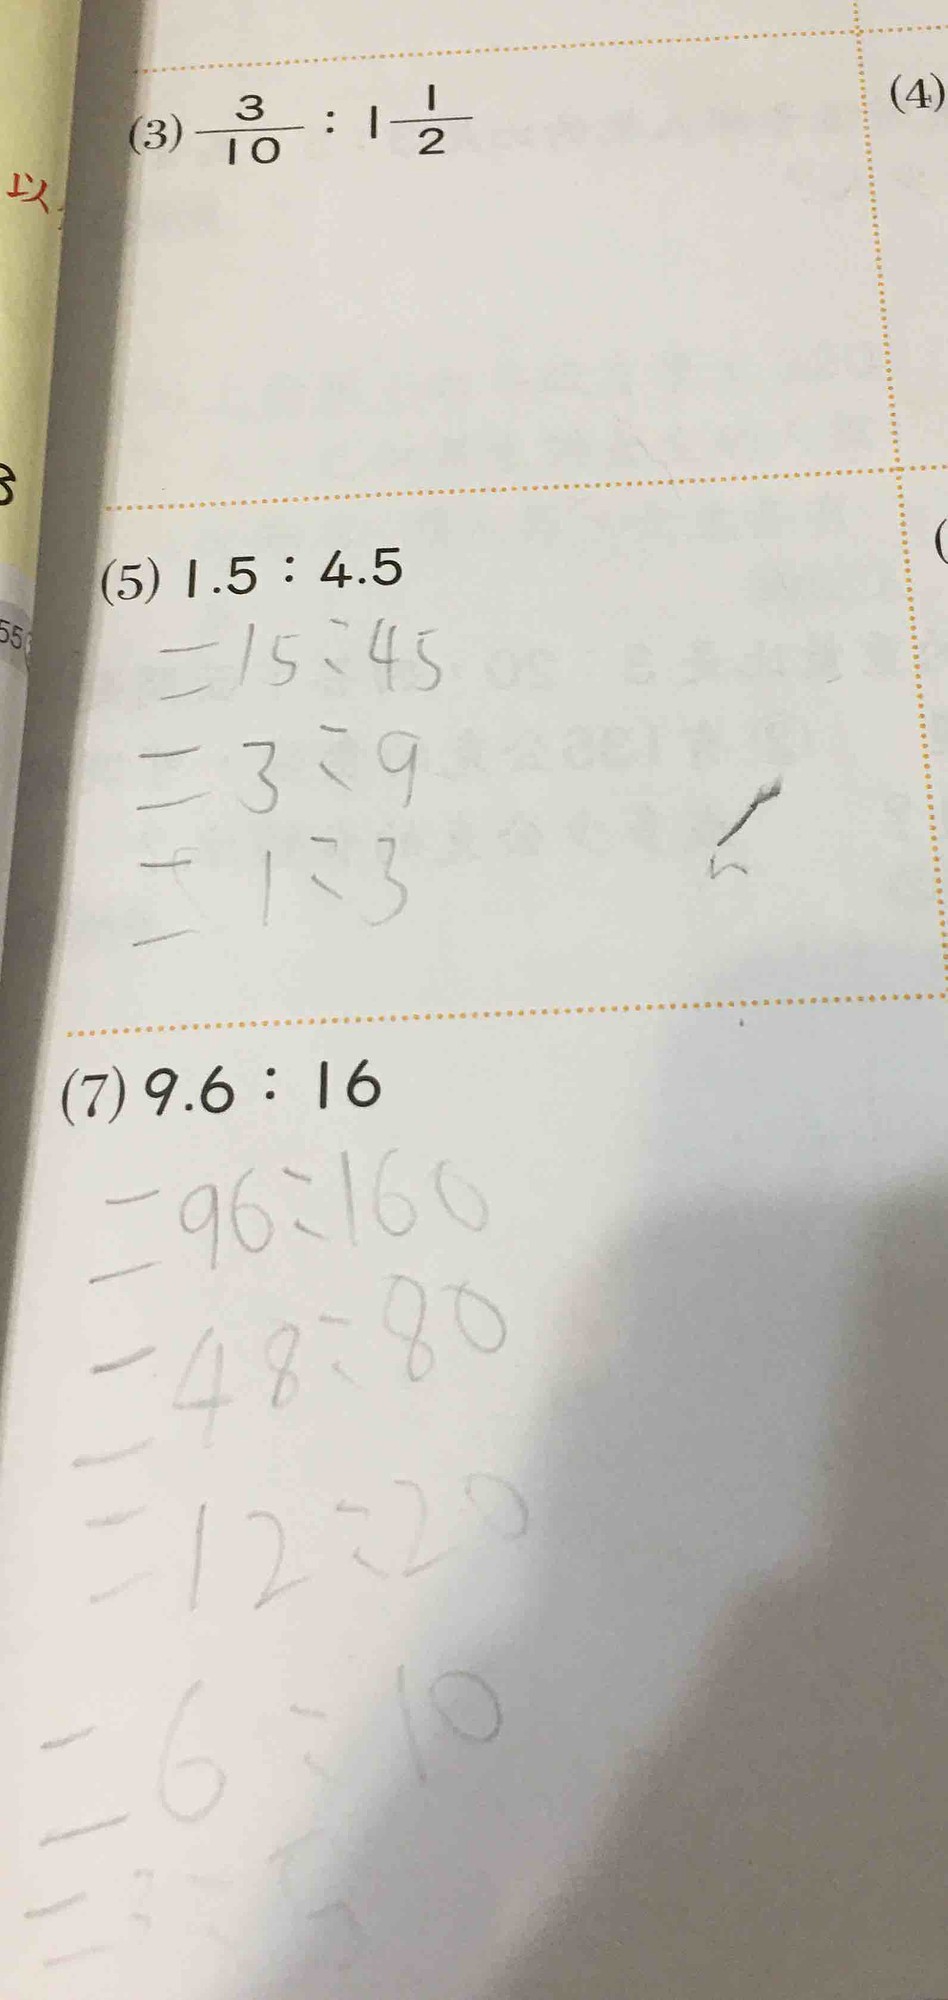 (3) 3/10 : 1 1/2
(4)
以
8
55
(5) 1.5 : 4.5
= 15 : 45
= 3 : 9
= 1 : 3
(
(7) 9.6 : 16
= 96 : 160
= 48 : 80
= 12 : 20
= 6 : 10
= 3 :